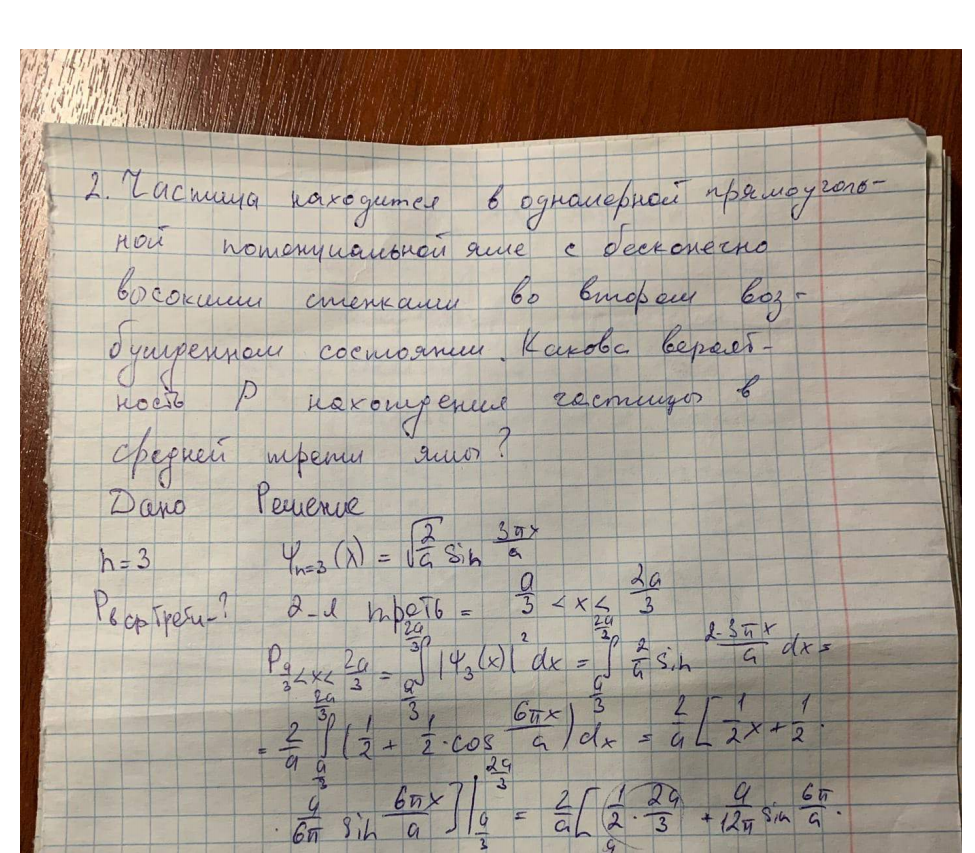 2. Частица находится в одномерной прямоуголь-
ной потенциальной яме с бесконечно
высокими стенками во втором воз-
бужденном состоянии. Какова вероят-
ность P нахождения частицы в
средней трети ямы?
Дано Решение
n=3 ψₙ₌₃(x) = √(2/a) sin 3πx/a
P в ср трети-? 2-я треть = a/3 < x < 2a/3
P a/3 < x < 2a/3 = ∫_{a/3}^{2a/3} |ψ₃(x)|² dx = ∫_{a/3}^{2a/3} 2/a sin 2·3πx/a dx =
= 2/a ∫_{a/3}^{2a/3} (1/2 + 1/2·cos 6πx/a) dx = 2/a [1/2 x + 1/2 ·
· a/6π sin 6πx/a]|_{a/3}^{2a/3} = 2/a [1/2 · 2a/3 + a/12π sin 6π/a ·